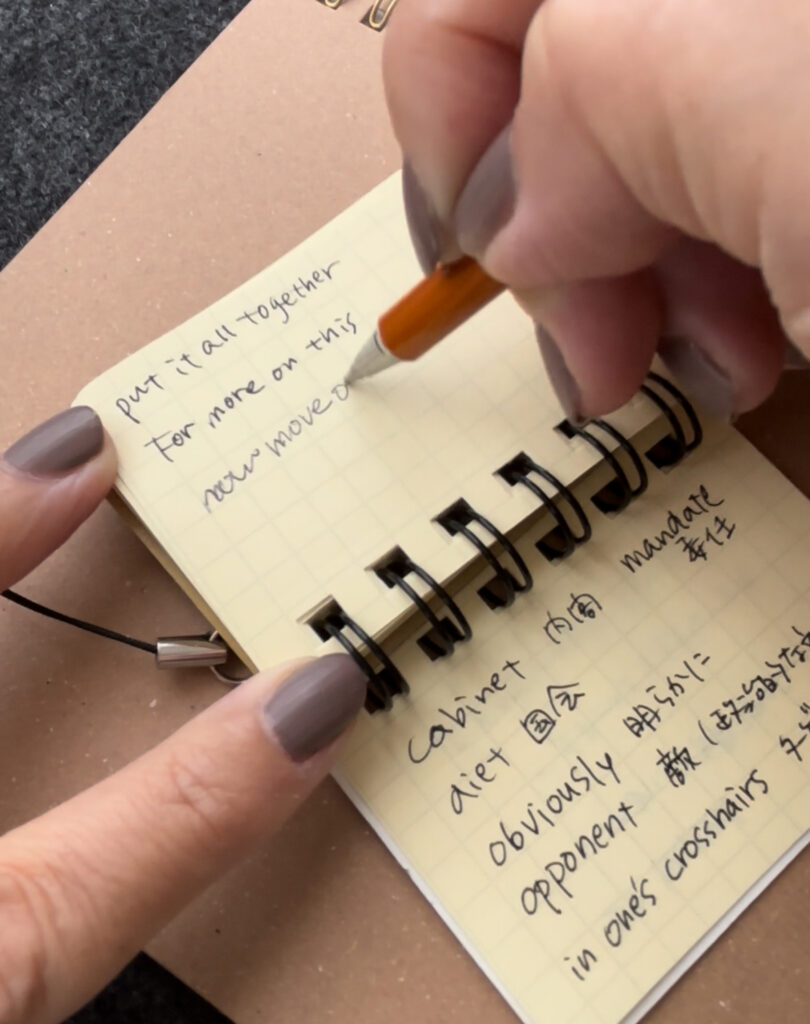 put it all together
For more on this
now move o
mandate
委任
cabinet 内閣
diet 国会
obviously 明らかに
opponent 敵(政治的な
in one's crosshairs